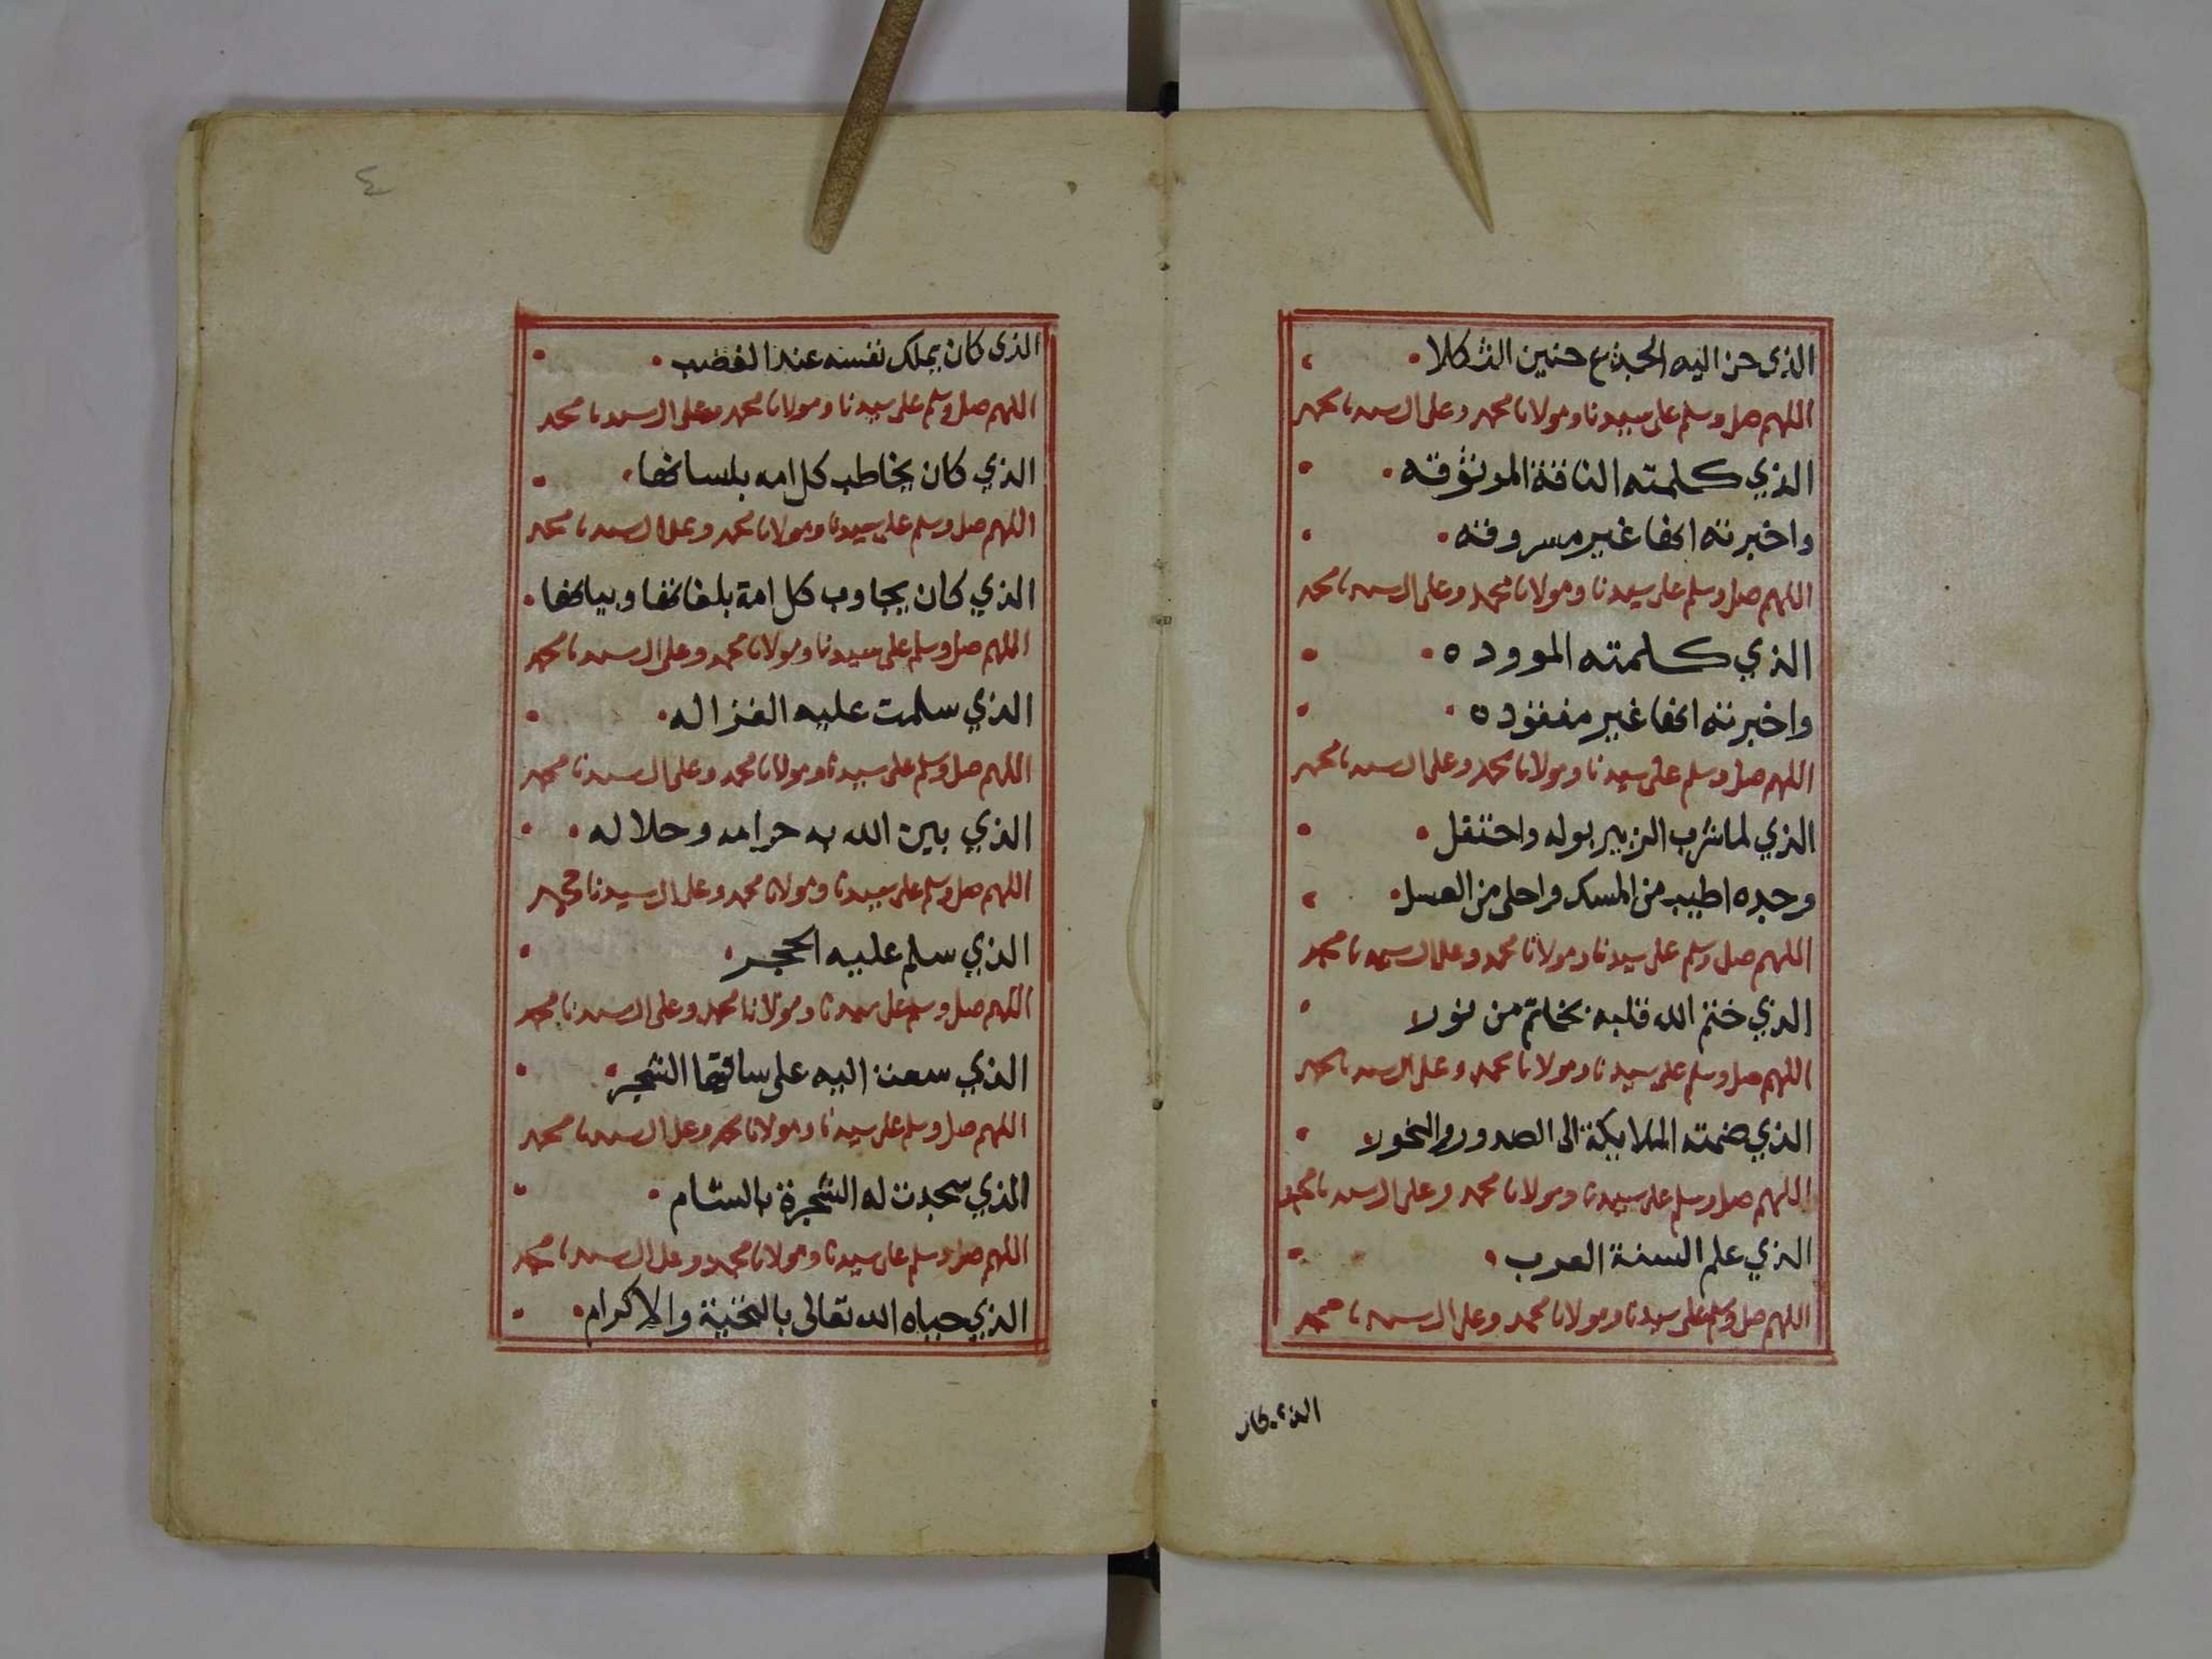 الذي حن اليه الجذع حنين الثكلا
اللهم صل وسلم على سيدنا ومولانا محمد وعلى ال سيدنا محمد
الذي كلمته الناقة الموثوقه
واخبرته انها غير مسروقه
اللهم صل وسلم على سيدنا ومولانا محمد وعلى ال سيدنا محمد
الذي كلمته المووده
واخبرته انها غير مفقوده
اللهم صل وسلم على سيدنا ومولانا محمد وعلى ال سيدنا محمد
الذي لما شرب الزبير بوله واحتفل
وجده اطيب من المسك واحلى من العسل
اللهم صل وسلم على سيدنا ومولانا محمد وعلى ال سيدنا محمد
الذي ختم الله قلبه بخاتم من نور
اللهم صل وسلم على سيدنا ومولانا محمد وعلى ال سيدنا محمد
الذي ضمته الملايكة الى الصدور والنحور
اللهم صل وسلم على سيدنا ومولانا محمد وعلى ال سيدنا محمد
الذي علم السنة العرب
اللهم صل وسلم على سيدنا ومولانا محمد وعلى ال سيدنا محمد
الذي كان
٤
الذي كان يملك نفسه عند الغضب
اللهم صل وسلم على سيدنا ومولانا محمد وعلى ال سيدنا محمد
الذي كان يخاطب كل امه بلسانها
اللهم صل وسلم على سيدنا ومولانا محمد وعلى ال سيدنا محمد
الذي كان يجاوب كل امة بلغاتها وبيانها
اللهم صل وسلم على سيدنا ومولانا محمد وعلى ال سيدنا محمد
الذي سلمت عليه الغزاله
اللهم صل وسلم على سيدنا ومولانا محمد وعلى ال سيدنا محمد
الذي بين الله به حرامه وحلاله
اللهم صل وسلم على سيدنا ومولانا محمد وعلى ال سيدنا محمد
الذي سلم عليه الحجر
اللهم صل وسلم على سيدنا ومولانا محمد وعلى ال سيدنا محمد
الذي سعت اليه على ساقها الشجر
اللهم صل وسلم على سيدنا ومولانا محمد وعلى ال سيدنا محمد
الذي سجدت له الشجرة بالشام
اللهم صل وسلم على سيدنا ومولانا محمد وعلى ال سيدنا محمد
الذي حباه الله تعالى بالتحية والاكرام